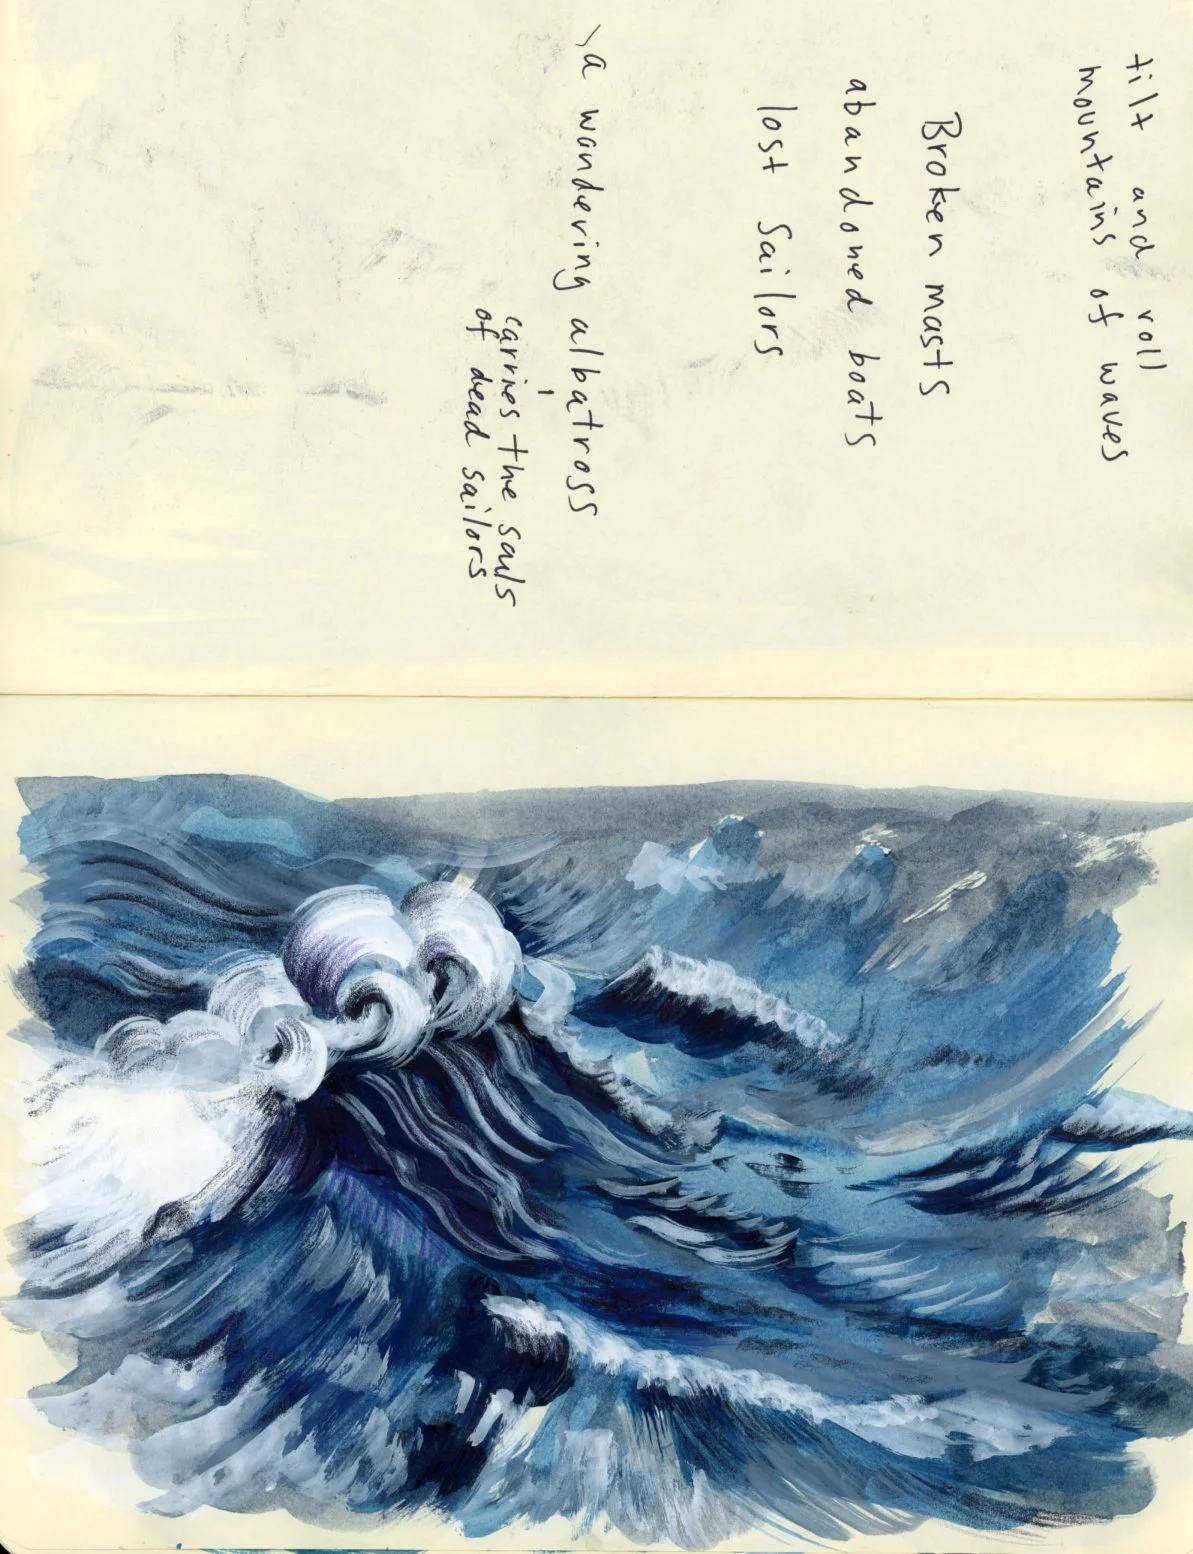 tilt and roll
mountains of waves
Broken masts
abandoned boats
lost sailors
a wandering albatross
carries the
of dead sailors